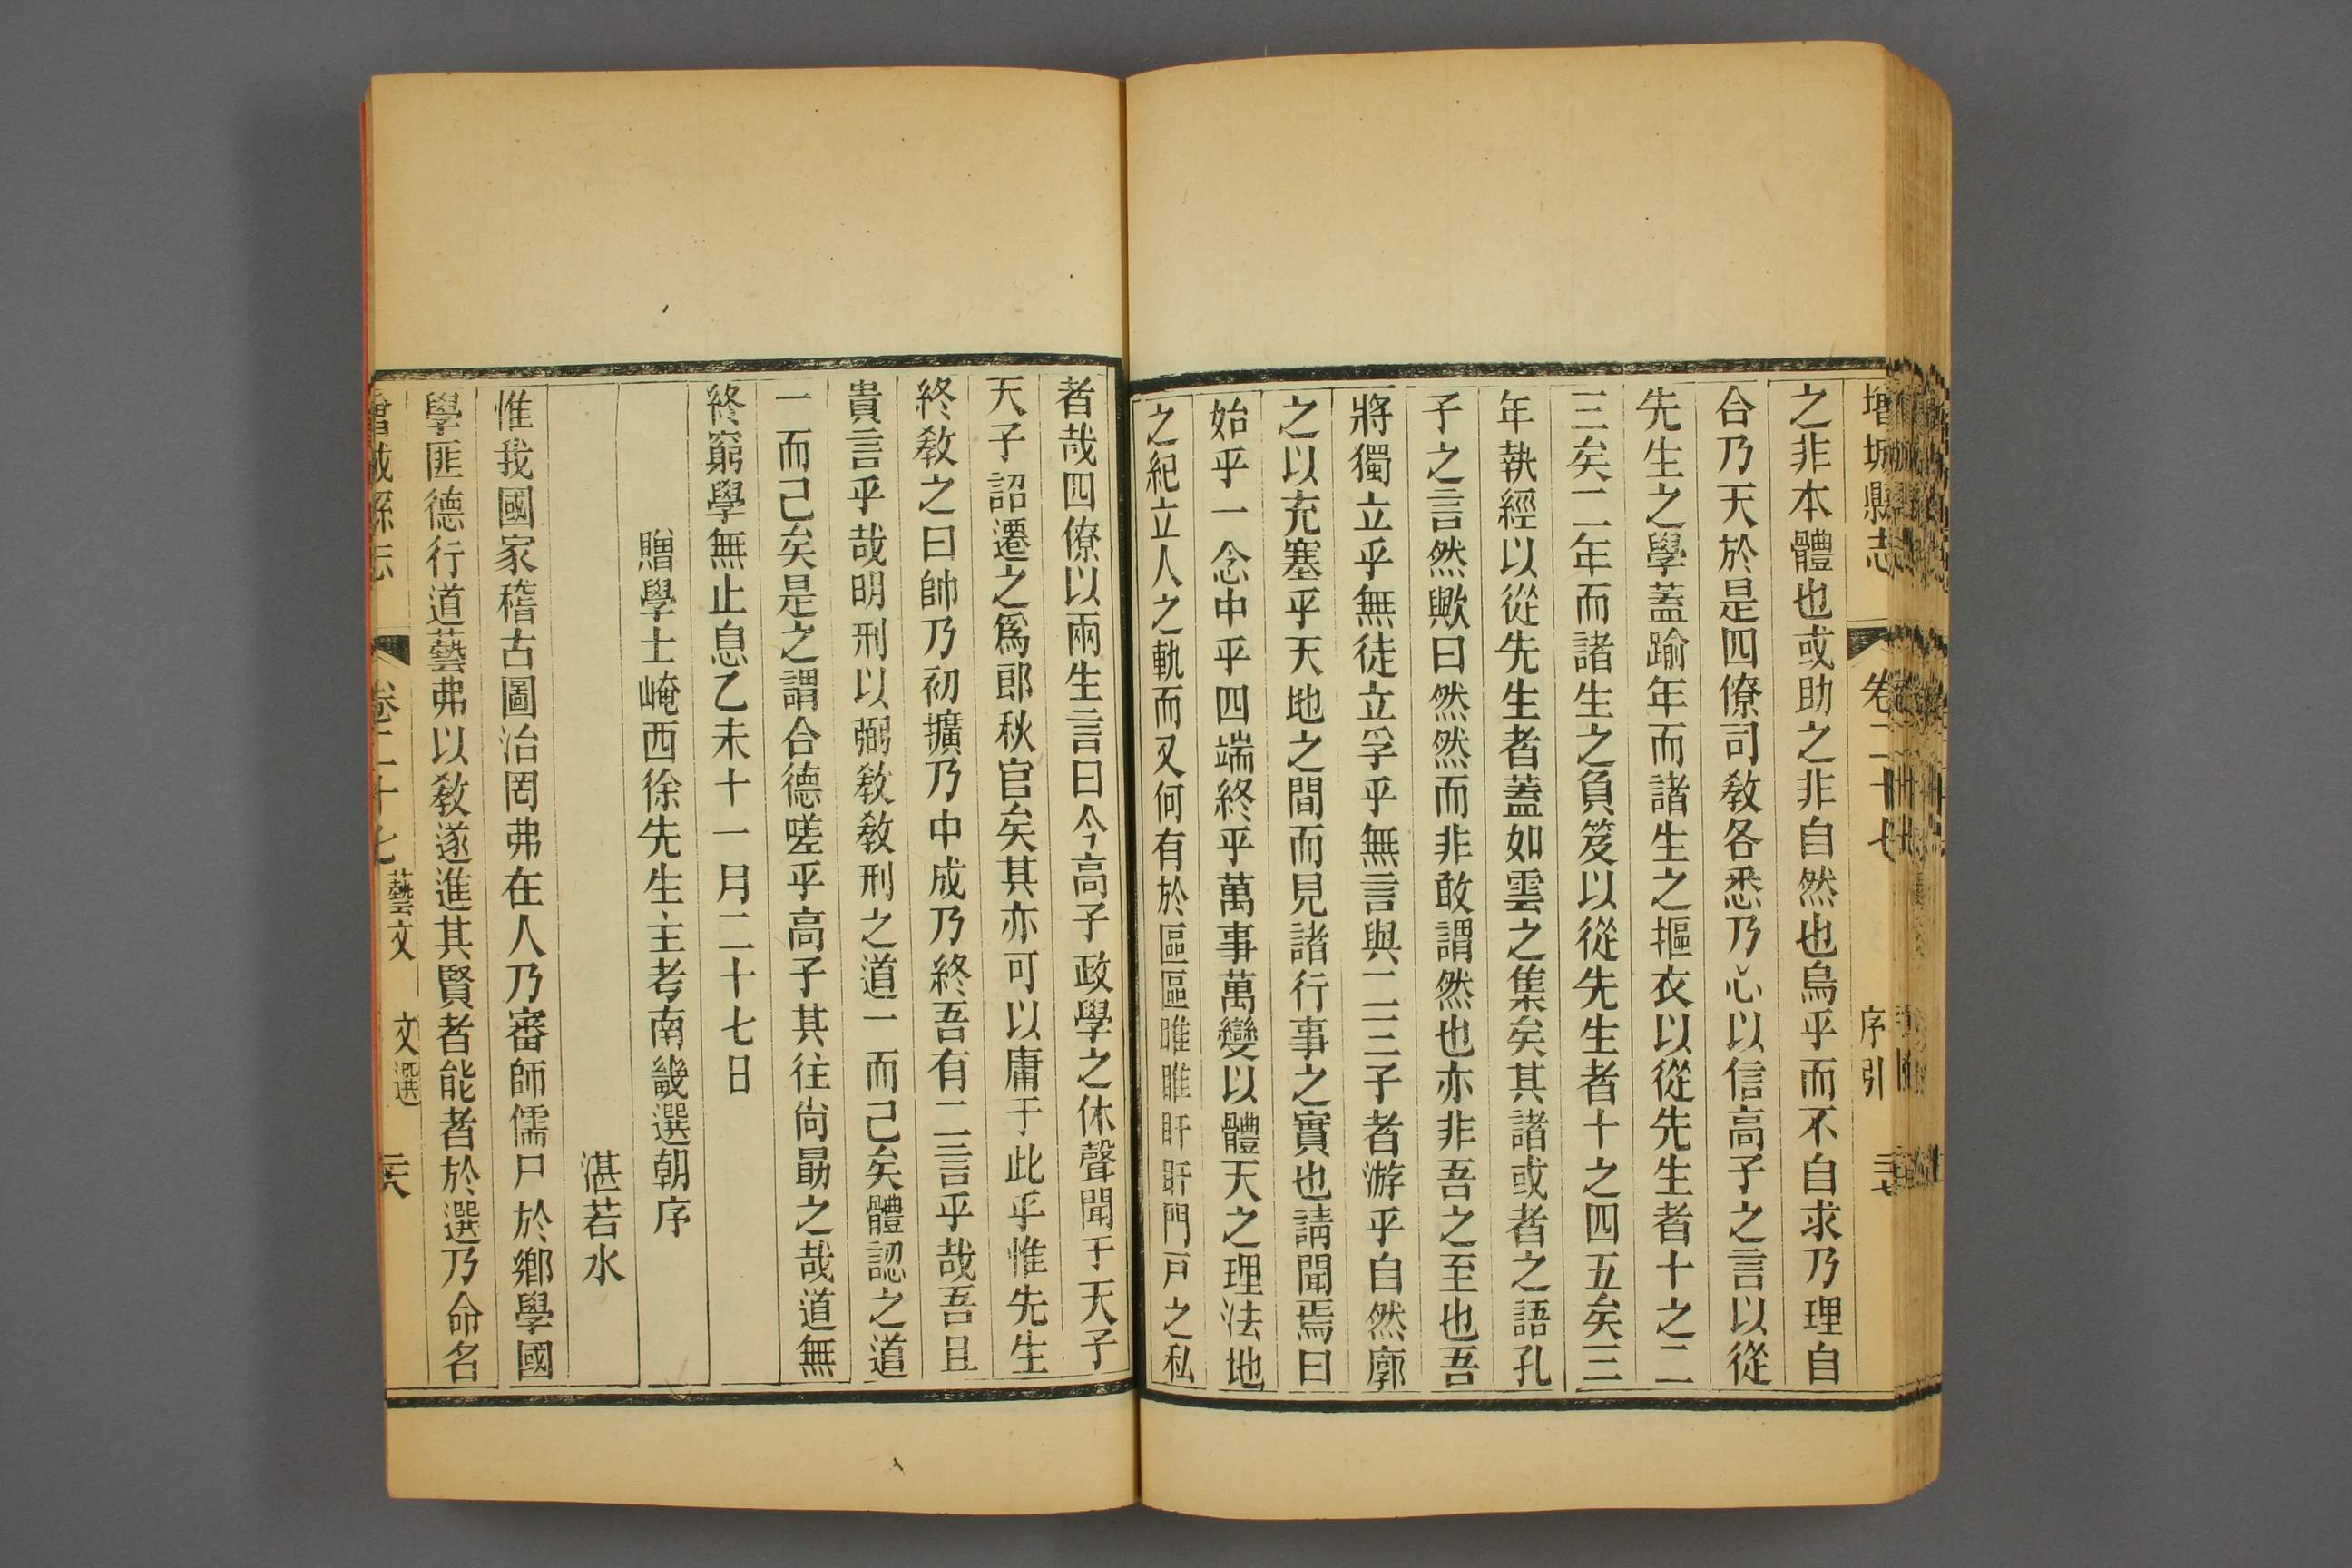 增城縣志
卷二十七
序引
之非本體也或助之非自然也烏乎而不自求乃理自
合乃天於是四僚司教各悉乃心以信高子之言以從
先生之學蓋踰年而諸生之摳衣以從先生者十之二
三矣二年而諸生之負笈以從先生者十之四五矣三
年執經以從先生者蓋如雲之集矣其諸或者之語孔
子之言然歟曰然然而非敢謂然也亦非吾之至也吾
將獨立乎無徒立孚乎無言與二三子者游乎自然廓
之以充塞乎天地之間而見諸行事之實也請聞焉曰
始乎一念中乎四端終乎萬事萬變以體天之理法地
之紀立人之軌而又何有於區區睢睢盱盱門戸之私
者哉四僚以兩生言曰今高子政學之休聲聞于天子
天子詔遷之爲郎秋官矣其亦可以庸于此乎惟先生
終敎之曰帥乃初擴乃中成乃終吾有二言乎哉吾且
貴言乎哉明刑以弼敎敎刑之道一而己矣體認之道
一而己矣是之謂合德嗟乎高子其往尙勗之哉道無
終窮學無止息乙未十一月二十七日
贈學士崦西徐先生主考南畿選朝序
湛若水
惟我國家稽古圖治罔弗在人乃審師儒尸於鄉學國
學匪德行道藝弗以敎遂進其賢者能者於選乃命名
增城縣志
卷二十七
藝文
文選